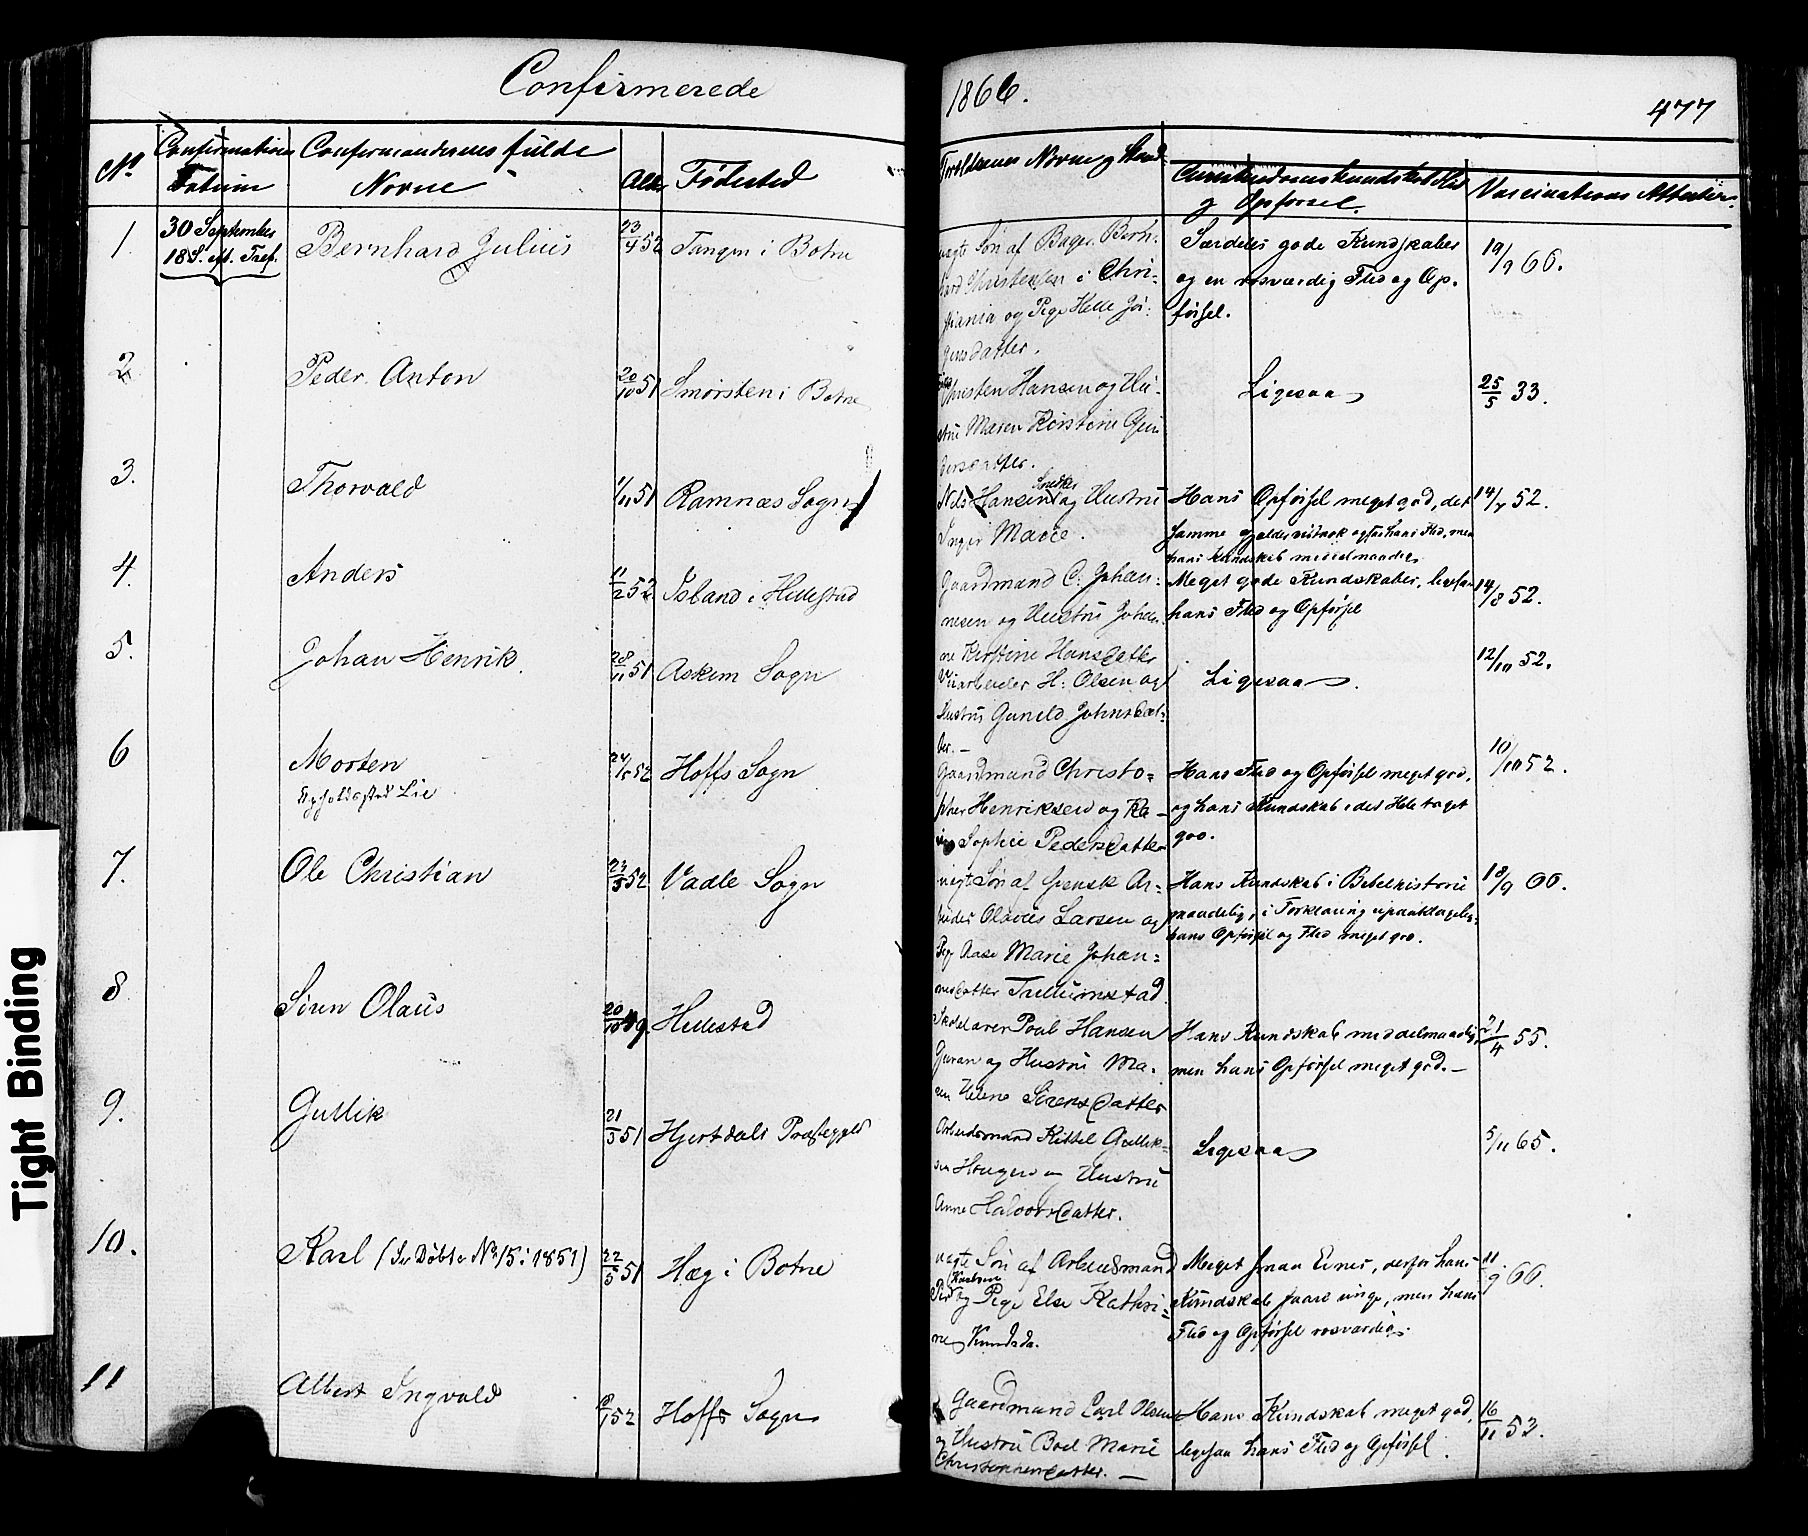 Confirmerede
1866.
477
No
Confirmations Datum
Confirmandernes fulde Navne
Alder
Fødested
Forældrenes Navne og Stand
Christendomskundskab Flid og Opførsel.
Vaccinations Attester.
1.
30 September
18 S. eft. Tref.
Bernhard Julius
23/4 52
Tangen i Botne
uægte Søn af Bager Bern-
hard Christensen i Chri-
stiania og Pige Helle Jør-
gensdatter.
Særdeles gode Kundskaber
og en rosværdig Flid og Op-
førsel.
19/9 66.
2
Peder Anton
20/10 51
Smørsten i Botne
Christen Hansen og Hu-
stru Maren Kirstine
dersdatter.
Ligesaa
25/5 33.
3.
Thorvald
1/11 51
Ramnæs Sogn
Nels Hansen og Hustru
Inger Marie.
Hans Opførsel meget god, det
samme gjælder ogsaa hans Flid, men
hans Kundskab middelmaadig
14/7 52.
4.
Anders
11/2 52
Island i Hillestad
Gaardmand C. Johan-
nesen og Hustru Johan-
ne Kirstine Hansdatter
Meget gode Kundskaber, ligesaa
hans Flid og Opførsel
14/8 52.
5.
Johan Henrik.
28/11 51
Askim Sogn
H. Olsen og
Hustru Gunild Johnsdat-
ter. –
Ligesaa.
12/10 52.
6
Morten
Opholdssted Lie
24/5 52
Hoffs Sogn
Gaardmand Christo-
pher Henriksen og Ka-
Sophie Pedersdatter
Hans Flid og Opførsel meget god,
og hans Kundskab i det Hele taget
god.
10/10 52.
7.
Ole Christian
23/3 52
Vadle Sogn
uægte Søn af svensk Ar-
beider Olaves Larsen og
Pige Aase Marie Johan-
nesdatter Trellumstad
Hans Kundskab i Bibelhistorie
maadelig, i Forklaring upaaklagelig,
hans Opførsel og Flid meget god.
18/9 66.
8
Sören Olaus
20/10 49
Hillestad
Skolelærer Poul Hansen
og Hustru Ma-
ren Helene Sörensdatter
Hans Kundskab middelmaadig,
men hans Opførsel meget god. –
21/4 55.
9.
Gullik
21/3 51
Hjertdals Præstegjeld
Arbeidsmand Kittel Gullik-
sen Haugen og Hustru
Anne Halvorsdatter.
Ligesaa
5/11 65.
10.
Karl (Se Døbte No 15: 1851)
22/5 51
Hæg i Botne
uægte Søn af Arbeidsmand
og Pige Else Kathri-
ne Knudsda.
Meget smaa Evner, derfor hans
Kundskab saare ringe, men hans
Flid og Opførsel rosværdig.
11/9 66.
11
Albert Ingvald
8/1 52
Hoffs Sogn
Gaardmand Carl Olsen
og Hustru Boel Marie
Christophersdatter. –
Hans Kundskab meget god,
ligesaa hans Flid og Opførsel.
16/11 53.
Tight Binding